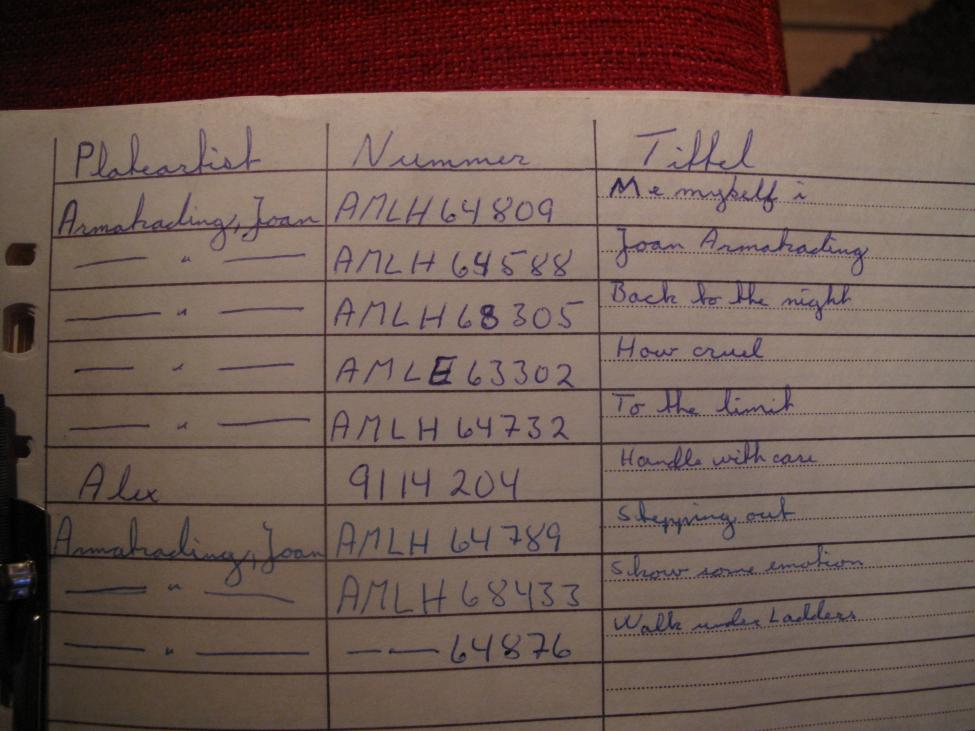 Plateartist Nummer Tittel
Armatrading, Joan AMLH 64809 Me myself i
—— " —— AMLH 64588 Joan Armatrading
—— " —— AMLH 68305 Back to the night
—— " —— AMLE 63302 How cruel
—— " —— AMLH 64732 To the limit
Alex 9114 204 Handle with care
Armatrading, Joan AMLH 64789 Stepping out
—— " —— AMLH 68433 Show some emotion
—— " —— —— 64876 Walk under Ladders